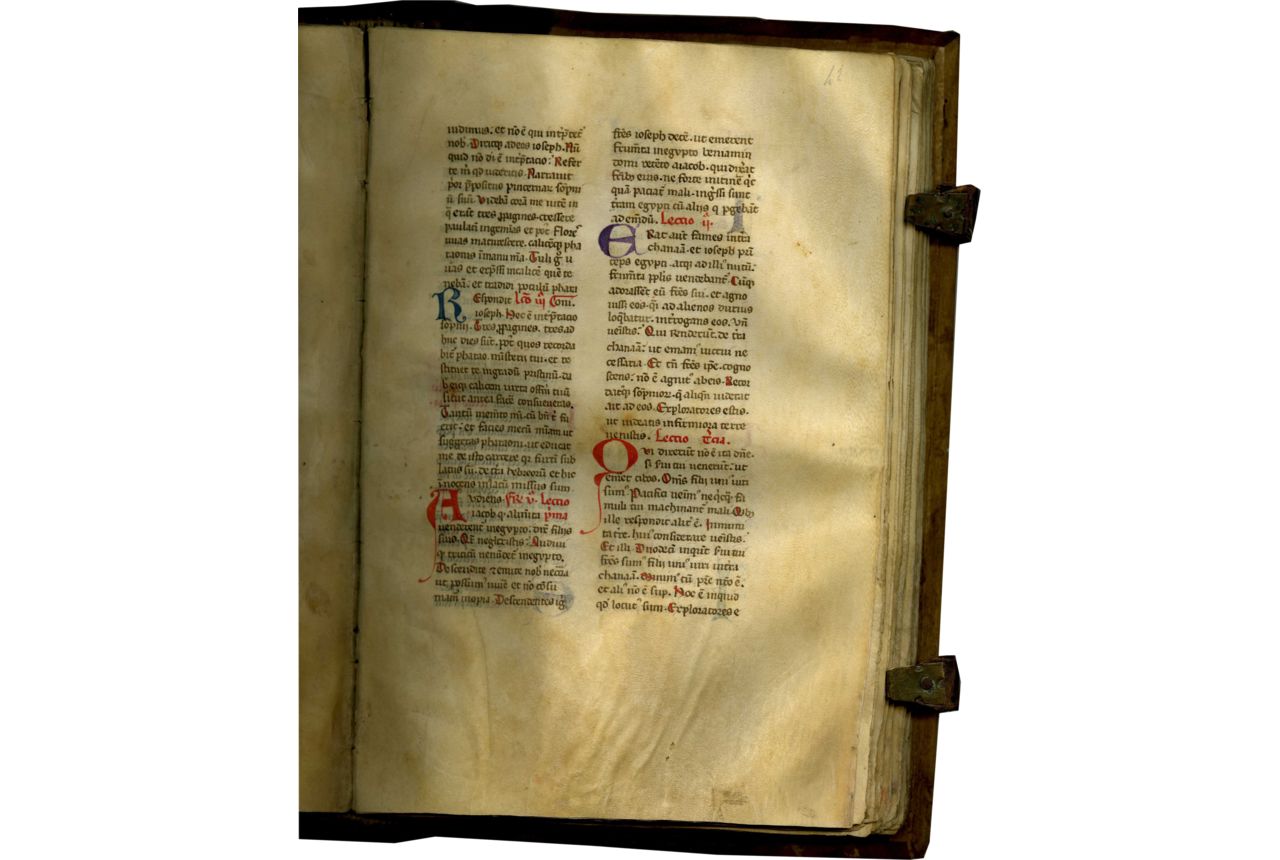 uidimus. et nō ē qui int̄p̄tet̄
nob̄. Dixitq; ad eos ioseph. Nū
quid nō dī ē int̄p̄tacio? Refer
te m̄ qd uidetitis. Narrauit
p̄or p̄positus pincernar̄ sōpni
ū suū. Videbā corā me uitē in
q̄ erāt tres p̄pagines. crescere
paulatī in gemias et pꝰt flores
uuas maturescere. calicēq; pha
raonis ī manu m̄a. Tuli g̊ u
uas et exp̄ssi in calicē quē te
nebā. et tradidi poculū phari
Respondit lc̄o iiij Com̄.
ioseph. Hec ē int̄p̄tacio
sōpnij. Tres p̄pagines. tres ad
huc dies sūt. pꝰt quos recorda
bit̄ pharao. mīsterii tui. et re
stituet te in gradū pristinū. da
b eiq; calicem iuxta offm̄ tuū
sicut antea facē consueueras.
Tantū mem̄to m̄i. cū bn̄ t̄ fu
erit. et facies mecū m̄iam ut
suggeras pharaoni. ut educat
me de isto carcere qꝛ furtī sub
latus sū. de t̄ra hebreorū et hic
inocens in lacū missus sum.
Audiens. Fr̄ v̄. Lectio
iacob q̄ alim̄ta p̄ma
uenderent̄ in egypto. dix̄ filijs
suis. Qr̄e negligitis? Audiui
q̄ triticū uenūdet̄ in egypto.
Descendite ⁊ emite nob̄ nec̄c̄ia
ut possimꝰ uiue et nō cōsu
mam̄ inopia. Descendentes iḡ
fr̄es ioseph decē. ut emerent
frum̄ta in egypto beniamin
domi retēto a iacob. qui dix̄at
frīb; eius. ne forte in itinē q̊c
quā paciat̄ mali. ingr̄ssi sunt
t̄ram egypti cū aliis q̄ p̄gebāt
ad emēdū. Lectio ij.
Erat aut̄ fames in t̄ra
chanaā. et ioseph prī
ceps egypti. atq; ad illiꝰ nutū.
frum̄ta p̄plis uendebant̄. Cūq;
adorassēt eū fr̄es sui. et agno
uisset eos. q̄si ad alienos durius
loq̄batur. int̄rogans eos. Vn̄
uenistis? Qui renderūt. de t̄ra
chanaā. ut emamꝰ uictui ne
cessaria. Et tn̄ fr̄es ip̄e cogno
scens. nō ē agnitꝰ ab eis. Recor
datꝰq; sōpnior̄. q̄ aliqn̄ uiderat
ait ad eos. Exploratores estis.
ut uideatis infirmiora terre
uenistis. Lectio t̄cia.
Qui dixerūt nō ē ita dn̄e.
Sꝫ serui tui venerūt. ut
emer̄t cibos. Om̄s filij uniꝰ uiri
sumꝰ. Pacifici ueīmꝰ neq̄cq̄ fa
muli tui machinant̄ mali. Qb;
ille respondit alit̄ ē. Inmuni
ta t̄re. huiꝰ considerare uenistis.
Et illi. Duodeci inquit serui tui
fr̄es sumꝰ filij uniꝰ uiri in t̄ra
chanaā. Minimꝰ cū pr̄e nr̄o ē.
et aliꝰ nō ē sup. Hoc ē inquid
qd̄ locutꝰ sum. Exploratores e